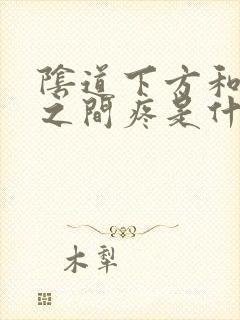 陰道下方和
之間疼是什
木犁